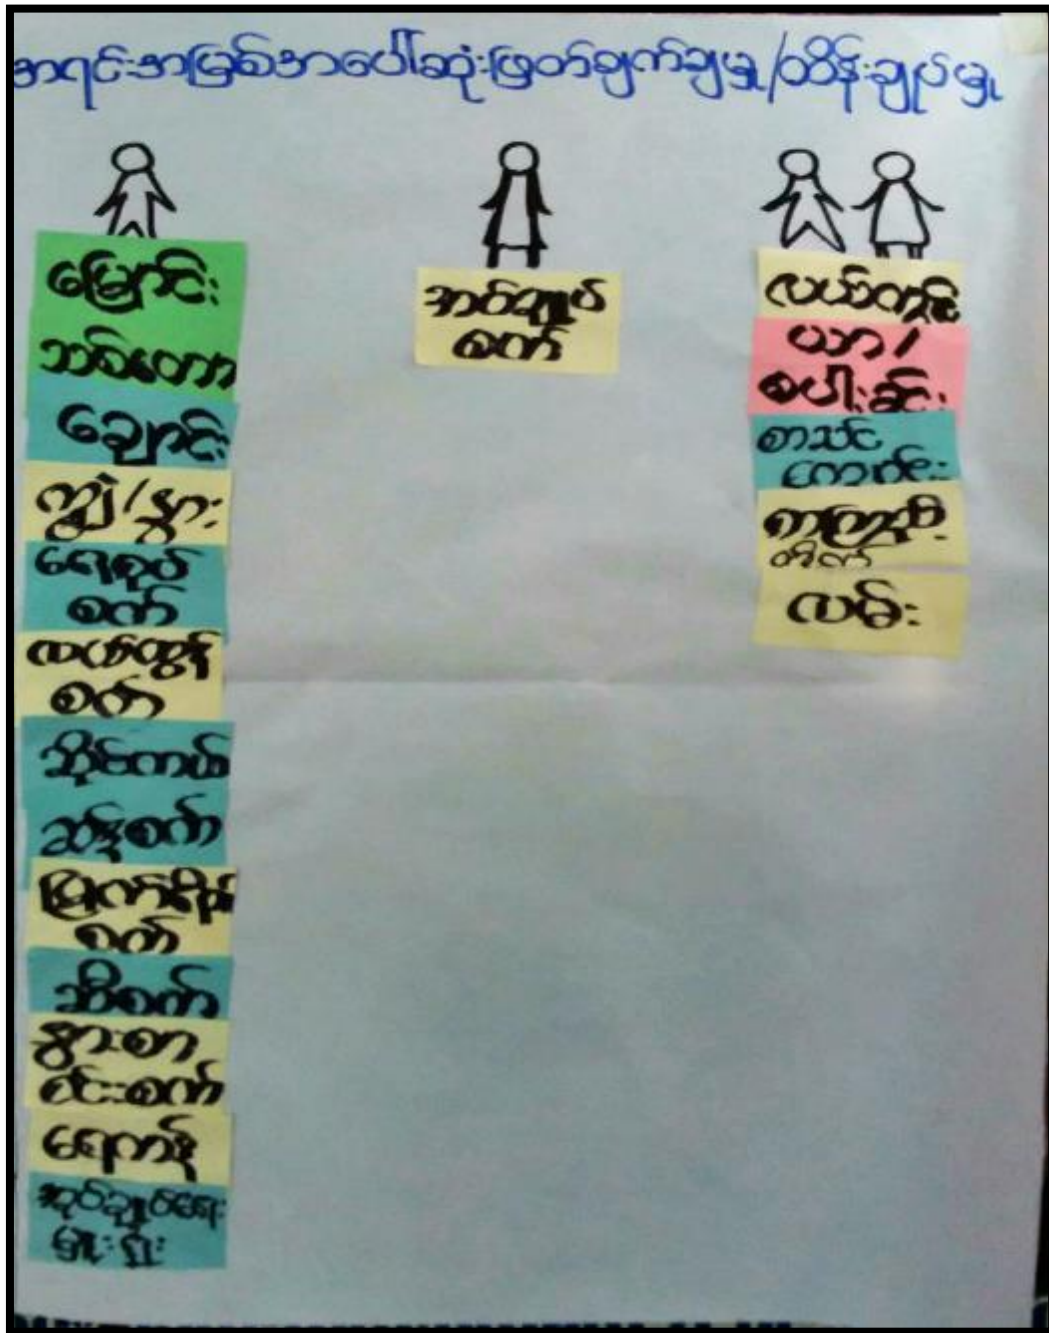 အရင်းအမြစ်အပေါ်ဆုံးဖြတ်ချက်ချမှု/ထိန်းချုပ်မှု
မြောင်း
သစ်တော
ချောင်း
ကျွဲ/နွား
ရေစုပ်
စက်
လယ်ထွန်
စက်
ဆိုင်ကယ်
ဆန်စက်
မြက်ရိတ်
စက်
ဆီစက်
နွားစာ
စင်းစက်
ရေကန်
အုပ်ချုပ်ရေး
မှူးရုံး
အပ်ချုပ်
စက်
လယ်ကွင်း
ယာ/
စပါးခင်း
စာသင်
ကျောင်း
တိုက်
လမ်း